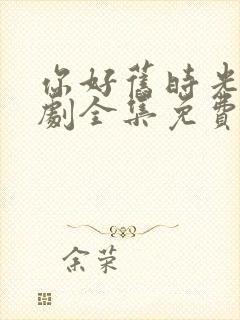 你好舊時光
劇全集免費
余荣